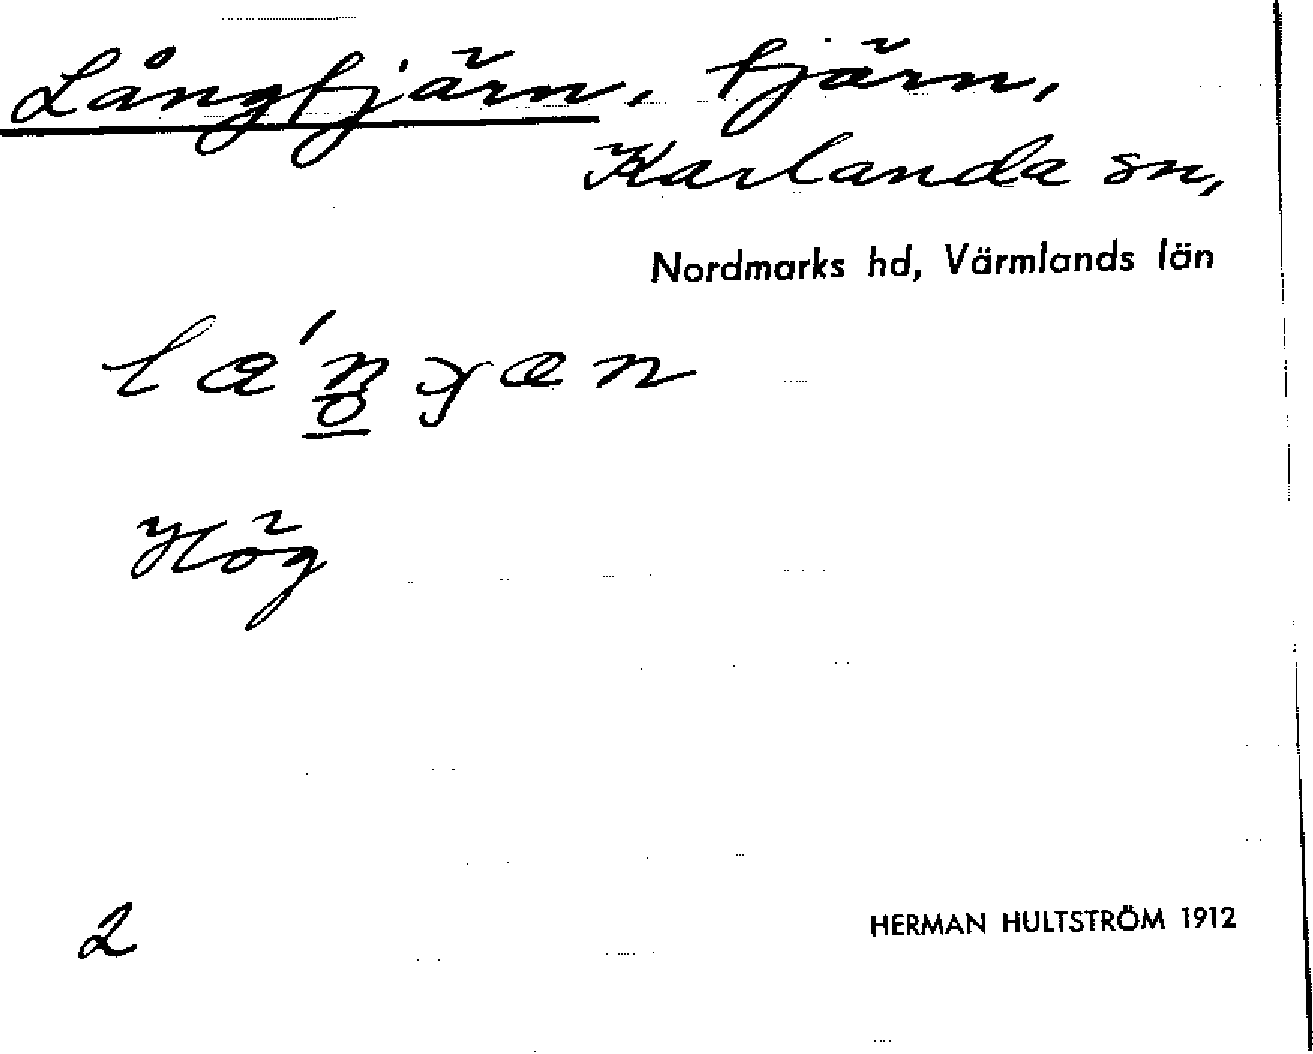 Långtjärn, tjärn,
Karlanda sn,
Nordmarks hd, Värmlands län
Hög
2
HERMAN HULTSTRÖM 1912